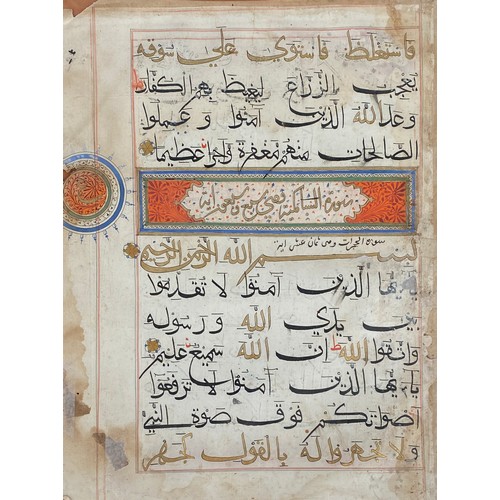 فاستغلظ فاستوى على سوقه
يعجب الزراع ليغيظ بهم الكفار
وعد الله الذين آمنوا وعملوا
الصالحات منهم مغفرة واجرا عظيما
سورة وهي سبع وسبعون اية
سورة الحجرات وهى ثمان عشر اية
بسم الله الرحمن الرحيم
يايها الذين آمنوا لا تقدموا
بين يدي الله ورسوله
واتقوا الله ان الله سميع عليم
يايها الذين آمنوا لا ترفعوا
اصواتكم فوق صوة النبي
ولا تجهروا له بالقول كجهر